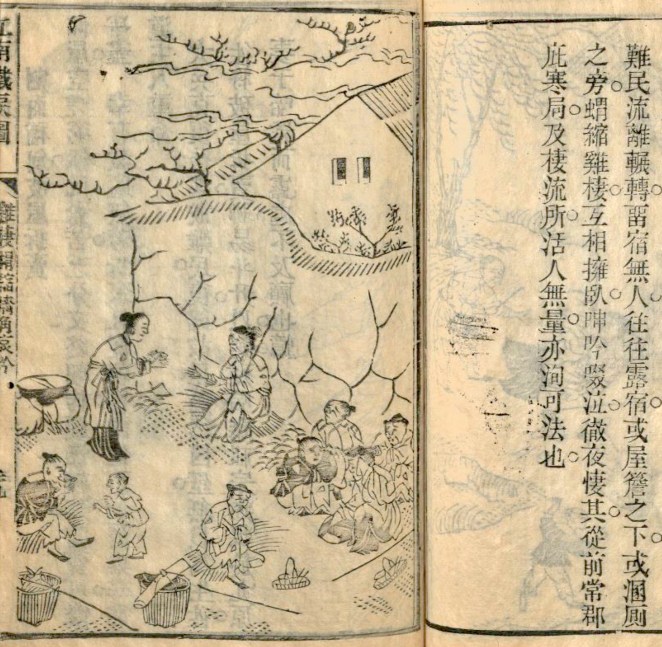 難民流離輾轉畱宿無人往往露宿或屋簷之下或溷厠
之旁蝟縮雞棲互相擁臥呻吟啜泣徹夜悽其從前常郡
庇寒局及棲流所活人無量亦洵可法也
江南鐵淚圖
雞棲蝟縮牆角哀吟